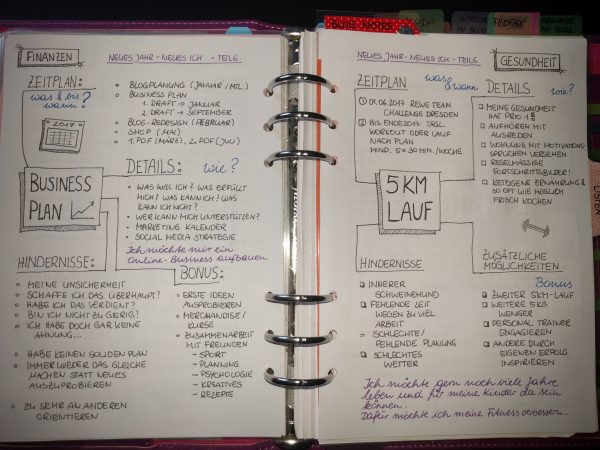 FINANZEN
NEUES JAHR - NEUES ICH - TEIL 6
ZEITPLAN:
was & bis
wann?
2017
BLOGPLANUNG (JANUAR / MZ.)
BUSINESS PLAN
1. DRAFT → JANUAR
2. DRAFT → SEPTEMBER
BLOG-REDESIGN (FEBRUAR)
SHOP (MAI)
1. PDF (MÄRZ), 2. PDF (JULI)
BUSINESS
PLAN
DETAILS: wie?
WAS WILL ICH? WAS ERFÜLLT
MICH? WAS KANN ICH? WAS
KANN ICH NICHT?
WER KANN MICH UNTERSTÜTZEN?
MARKETING KALENDER
SOCIAL MEDIA STRATEGIE
Ich möchte mir ein
Online-Business aufbauen.
HINDERNISSE:
MEINE UNSICHERHEIT
SCHAFFE ICH DAS ÜBERHAUPT?
HABE ICH DAS VERDIENT?
BIN ICH NICHT ZU GIERIG?
ICH HABE DOCH GAR KEINE
AHNUNG...
HABE KEINEN SOLIDEN PLAN
IMMER WIEDER DAS GLEICHE
MACHEN STATT NEUES
AUSZUPROBIEREN
ZU SEHR AN ANDEREN
ORIENTIEREN
BONUS:
ERSTE IDEEN
AUSPROBIEREN
MERCHANDISE /
KURSE
ZUSAMMENARBEIT
MIT FREUNDEN
~ SPORT
~ PLANNING
~ PSYCHOLOGIE
~ KREATIVES
~ REZEPTE
BLOG NOTES
FILOFAX
MY BLOG
LISTEN
NEUES JAHR - NEUES ICH - TEIL 6
GESUNDHEIT
ZEITPLAN was & wann
1 01.06.2017 REWE TEAM
CHALLENGE DRESDEN
2 BIS ENDE 2017 TÄGL.
WORKOUT ODER LAUF
NACH PLAN
MIND. 5x 30 MIN. /WOCHE
DETAILS wie?
MEINE GESUNDHEIT
HAT PRIO 1
AUFHÖREN MIT
AUSREDEN
WOHNUNG MIT MOTIVATIONS-
SPRÜCHEN VERSEHEN
REGELMÄSSIGE
FORTSCHRITTSBILDER!
KETOGENE ERNÄHRUNG &
SO OFT WIE MÖGLICH
FRISCH KOCHEN
5 KM
LAUF
HINDERNISSE
INNERER
SCHWEINEHUND
FEHLENDE ZEIT
WEGEN ZU VIEL
ARBEIT
SCHLECHTE /
FEHLENDE PLANUNG
SCHLECHTES
WETTER
ZUSÄTZLICHE
MÖGLICHKEITEN
Bonus
ZWEITER 5KM-LAUF
WEITERE 5 KG
WENIGER
PERSONAL TRAINER
ENGAGIEREN
ANDERE DURCH
EIGENEN ERFOLG
INSPIRIEREN
Ich möchte gern noch viele Jahre
leben und für meine Kinder da sein
können.
Dafür möchte ich meine Fitness verbessern.